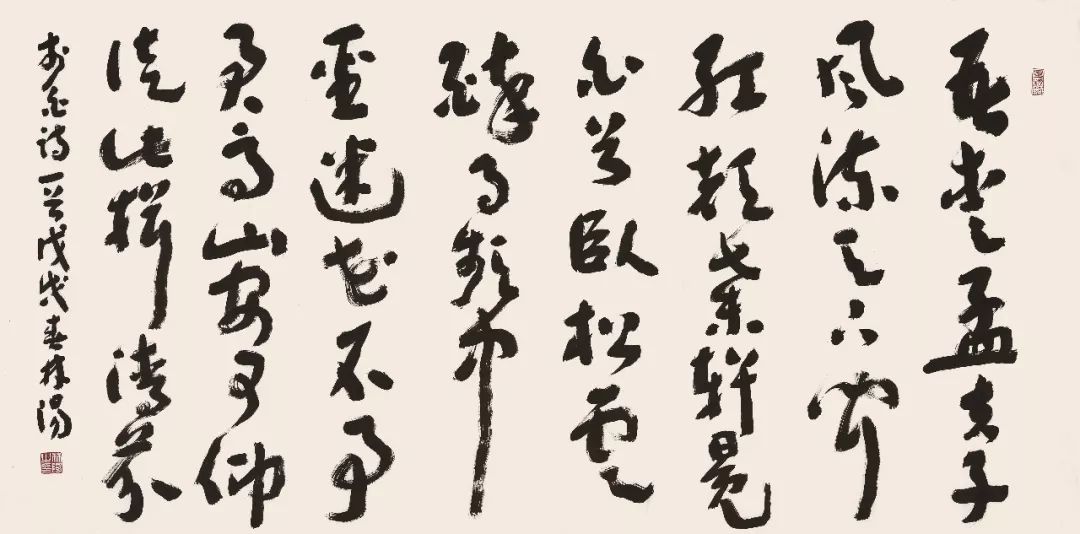 吾愛孟夫子
風流天下聞
紅顏棄軒冕
白首臥松雲
醉月頻中
聖迷花不事
君高山安可仰
徒此揖清芬
李白詩一首戊戌春林陽